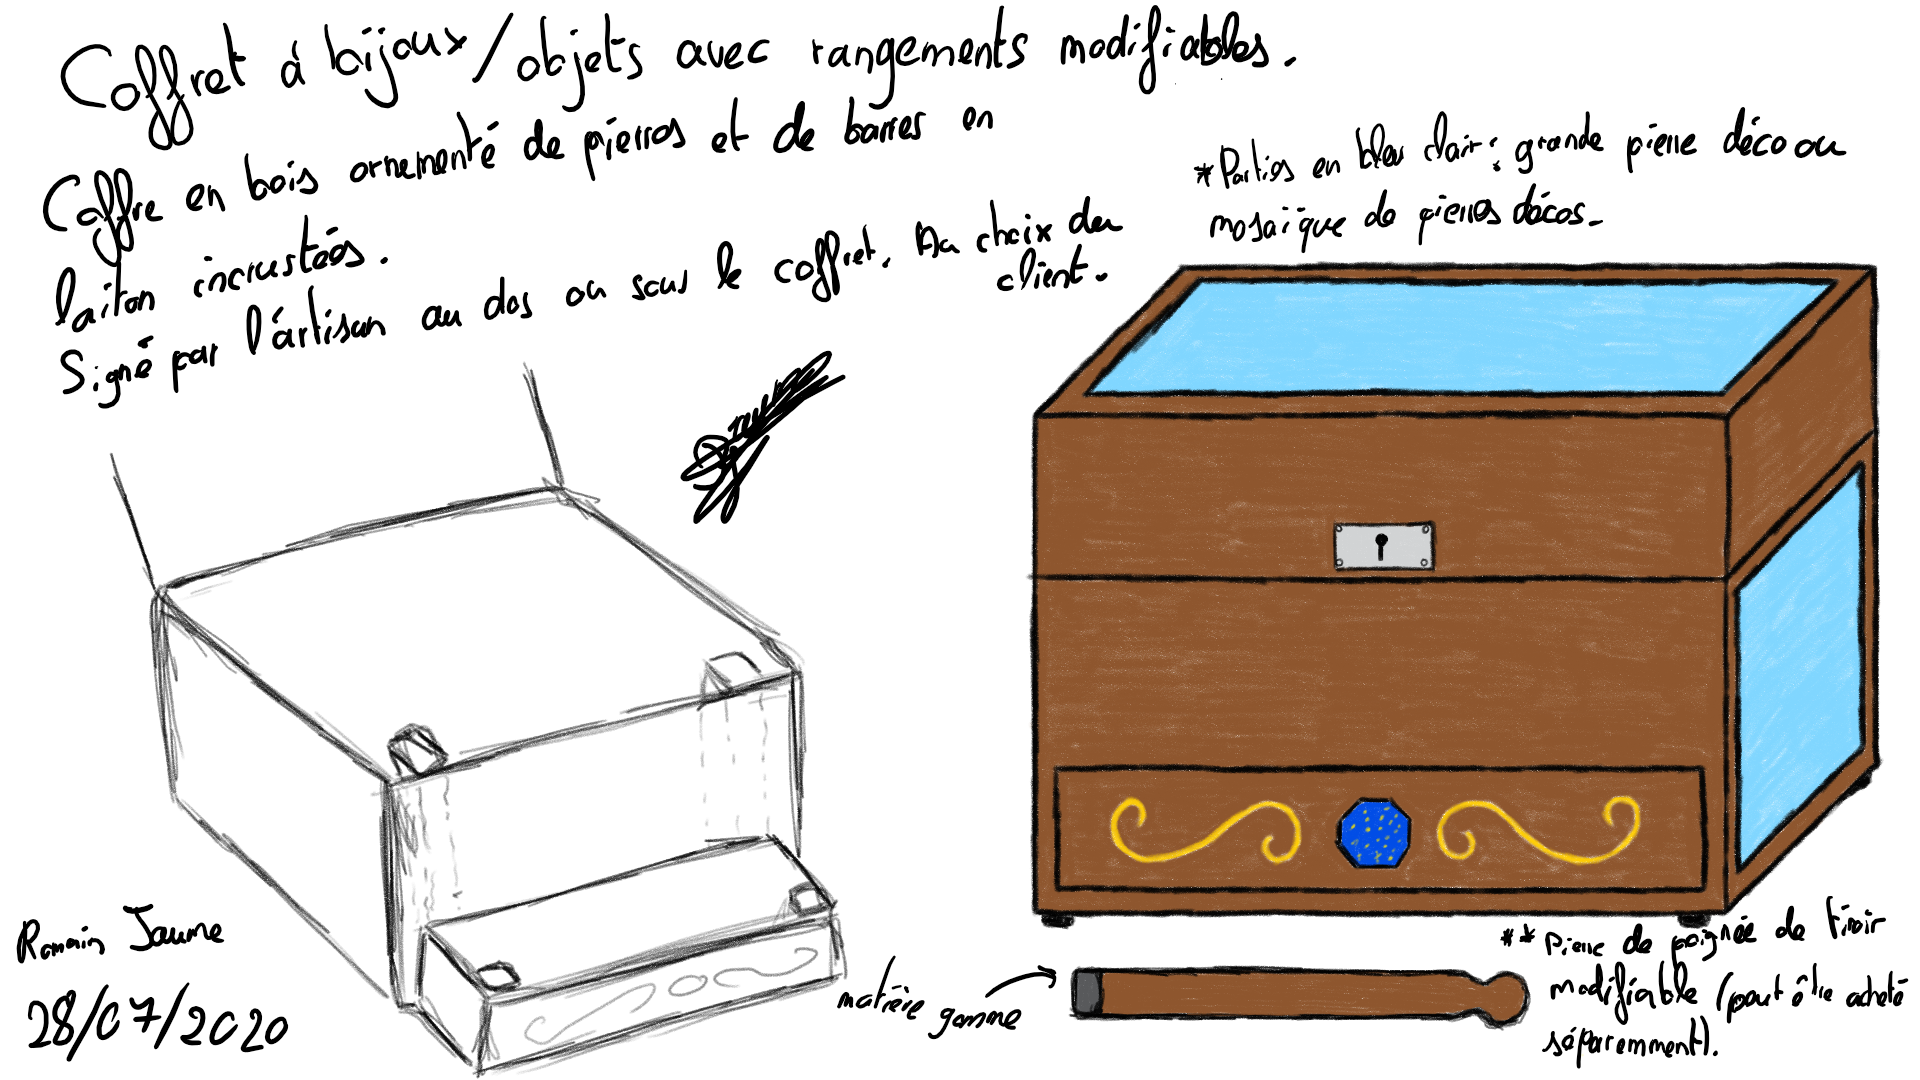 Coffret à bijoux/objets avec rangements modifiables.
Coffre en bois ornementé de pierres et de barres en
laiton incrustées.
Signé par l'artisan au dos ou sous le coffret. Au choix du
client.
*Parties en bleu clair : grande pierre déco ou
mosaïque de pierres décos.
Romain Jaume
28/07/2020
matière gomme
** Pierre de poignée de tiroir
modifiable (peut être acheté
séparemment).